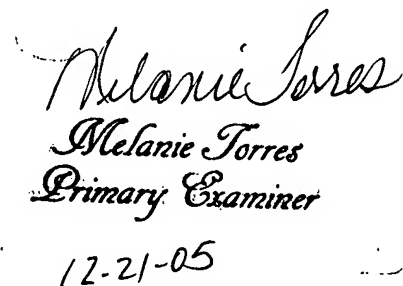 Melanie Torres
Melanie Torres
Primary Examiner
12-21-05